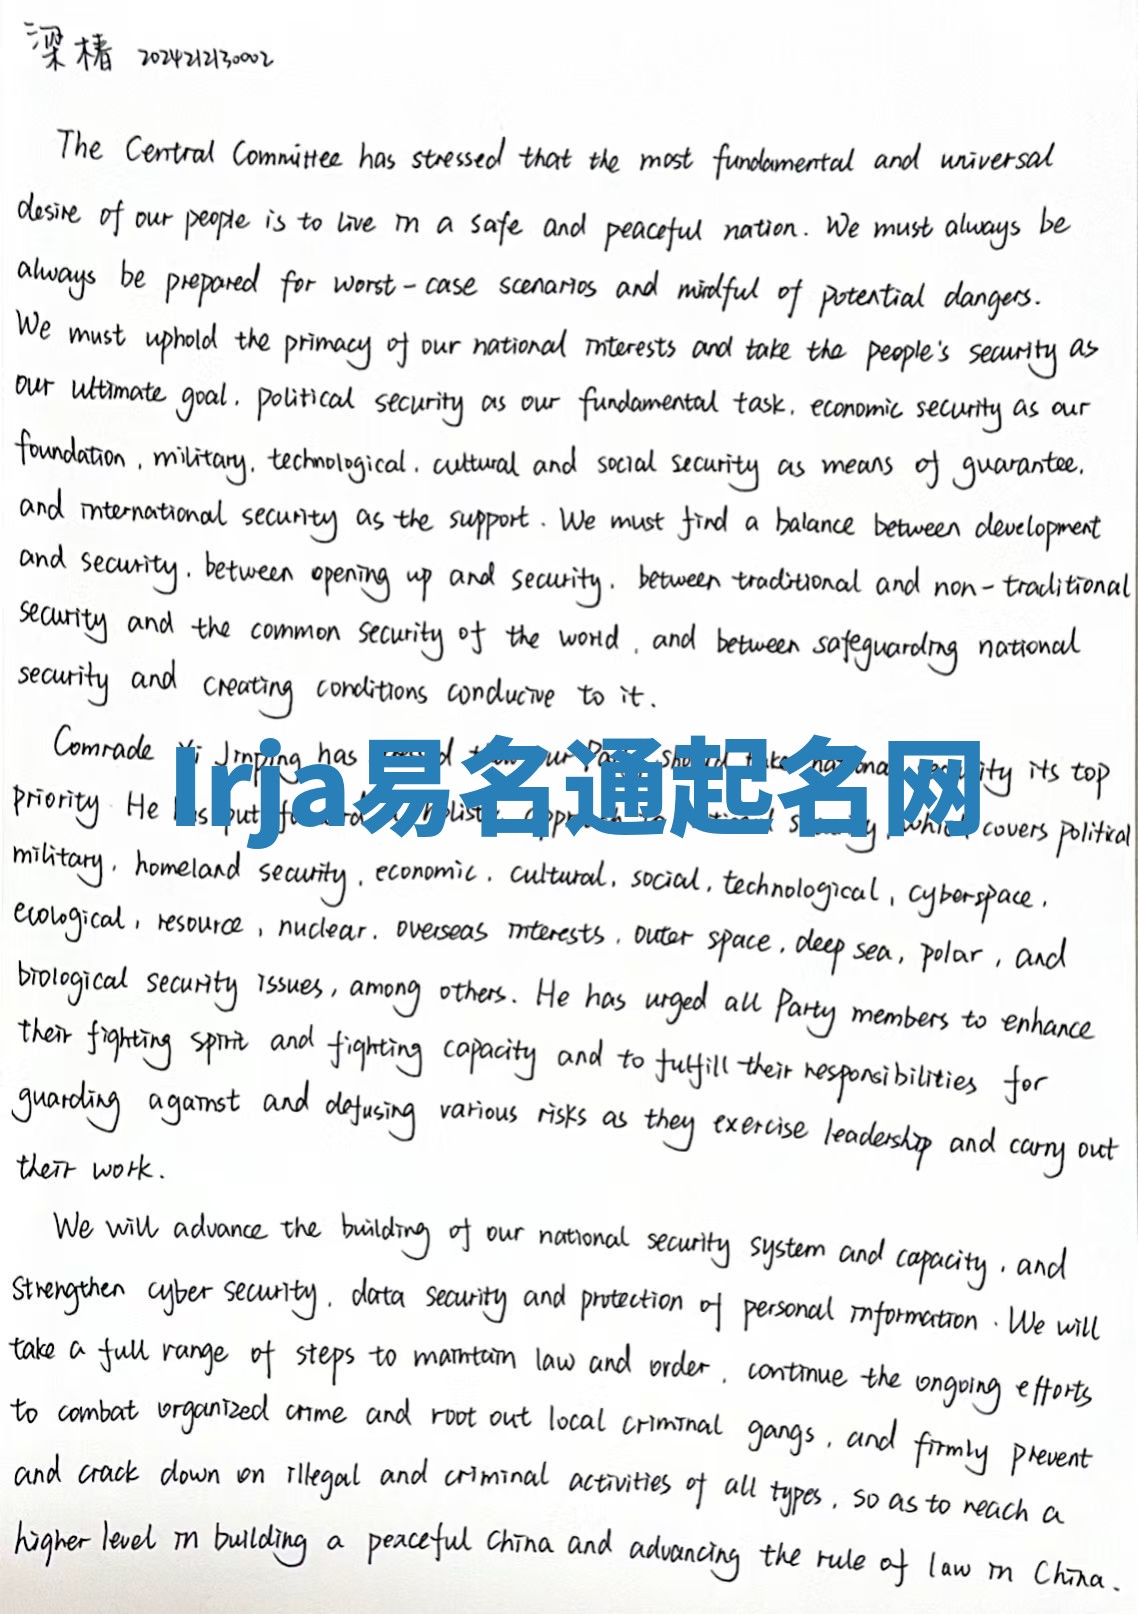 梁椿 2024212130002
The Central Committee has stressed that the most fundamental and universal
desire of our people is to live in a safe and peaceful nation. We must always be
always be prepared for worst-case scenarios and mindful of potential dangers.
We must uphold the primacy of our national interests and take the people's security as
our ultimate goal, political security as our fundamental task, economic security as our
foundation, military, technological, cultural and social security as means of guarantee,
and international security as the support. We must find a balance between development
and security, between opening up and security, between traditional and non-traditional
security and the common security of the world, and between safeguarding national
security and creating conditions conducive to it.
Comrade Xi Jinping has that our Party should take national security its top
Irja易名通起名网
priority. He has put forward a holistic approach to national security, which covers political
military, homeland security, economic, cultural, social, technological, cyberspace,
ecological, resource, nuclear, overseas interests, outer space, deep sea, polar, and
biological security issues, among others. He has urged all Party members to enhance
their fighting spirit and fighting capacity and to fulfill their responsibilities for
guarding against and defusing various risks as they exercise leadership and carry out
their work.
We will advance the building of our national security system and capacity, and
strengthen cyber security, data security and protection of personal information. We will
take a full range of steps to maintain law and order, continue the ongoing efforts
to combat organized crime and root out local criminal gangs, and firmly prevent
and crack down on illegal and criminal activities of all types, so as to reach a
higher level in building a peaceful China and advancing the rule of law in China.